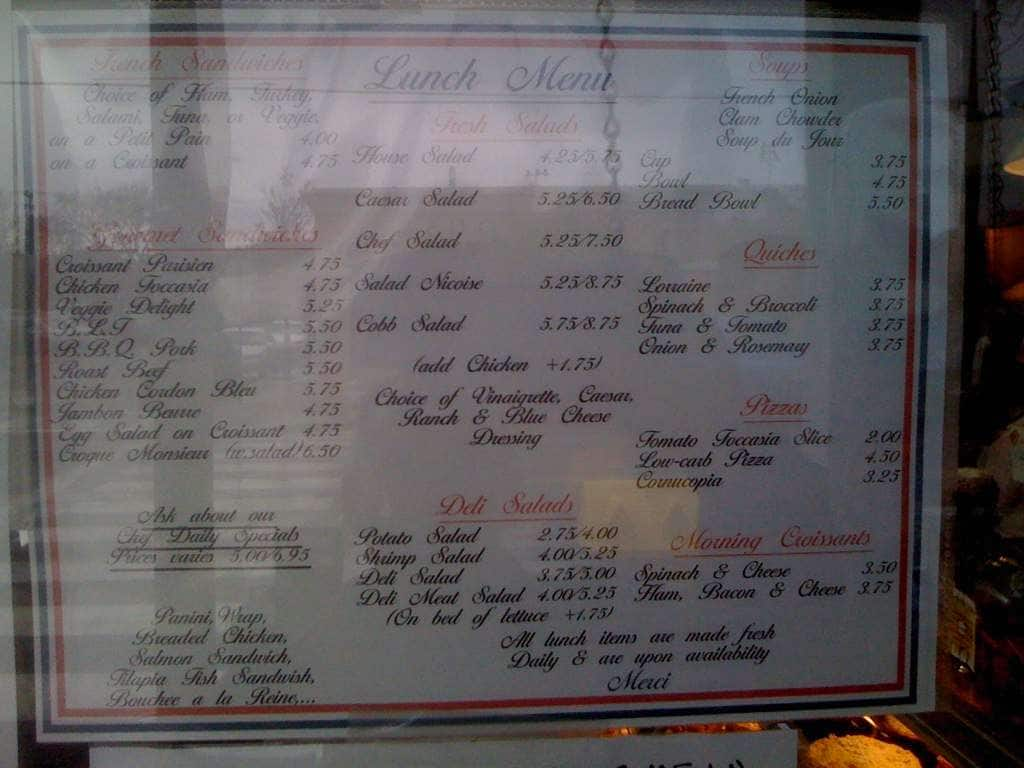 Lunch Menu
French Sandwiches
Choice of Ham, Turkey,
Salami, Tuna, or Veggie,
on a Petit Pain 4.00
on a Croissant 4.75
Gourmet Sandwiches
Croissant Parisien 4.75
Chicken Foccasia 4.75
Veggie Delight 5.25
B.L.T 5.50
B.B.Q Pork 5.50
Roast Beef 5.50
Chicken Cordon Bleu 5.75
Jambon Beurre 4.75
Egg Salad on Croissant 4.75
Croque Monsieur (w.salad) 6.50
Ask about our
Chef Daily Specials
Prices varies 5.00/6.95
Panini, Wrap,
Breaded Chicken,
Salmon Sandwich,
Tilapia Fish Sandwish,
Bouchee a la Reine,...
Fresh Salads
House Salad 4.25/5.75
Caesar Salad 5.25/6.50
Chef Salad 5.25/7.50
Salad Nicoise 5.25/8.75
Cobb Salad 5.75/8.75
(add Chicken +1.75)
Choice of Vinaigrette, Caesar,
Ranch & Blue Cheese
Dressing
Deli Salads
Potato Salad 2.75/4.00
Shrimp Salad 4.00/5.25
Deli Salad 3.75/5.00
Deli Meat Salad 4.00/5.25
(On bed of lettuce +1.75)
Soups
French Onion
Clam Chowder
Soup du Jour
Cup 3.75
Bowl 4.75
Bread Bowl 5.50
Quiches
Lorraine 3.75
Spinach & Broccoli 3.75
Tuna & Tomato 3.75
Onion & Rosemary 3.75
Pizzas
Tomato Foccasia Slice 2.00
Low-carb Pizza 4.50
Cornucopia 3.25
Morning Croissants
Spinach & Cheese 3.50
Ham, Bacon & Cheese 3.75
All lunch items are made fresh
Daily & are upon availability
Merci